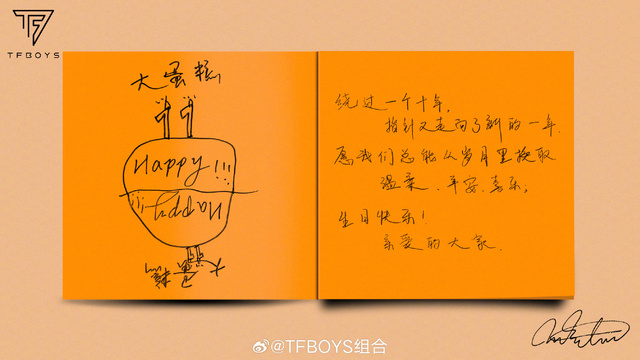 TF
TFBOYS
大蛋糕
Happy!!!
Happy!!!
大蛋糕
绕过一个十年,
指针又走向了新的一年.
愿我们总能从岁月里换取
温柔、平安、喜乐;
生日快乐!
亲爱的大家.
@TFBOYS组合